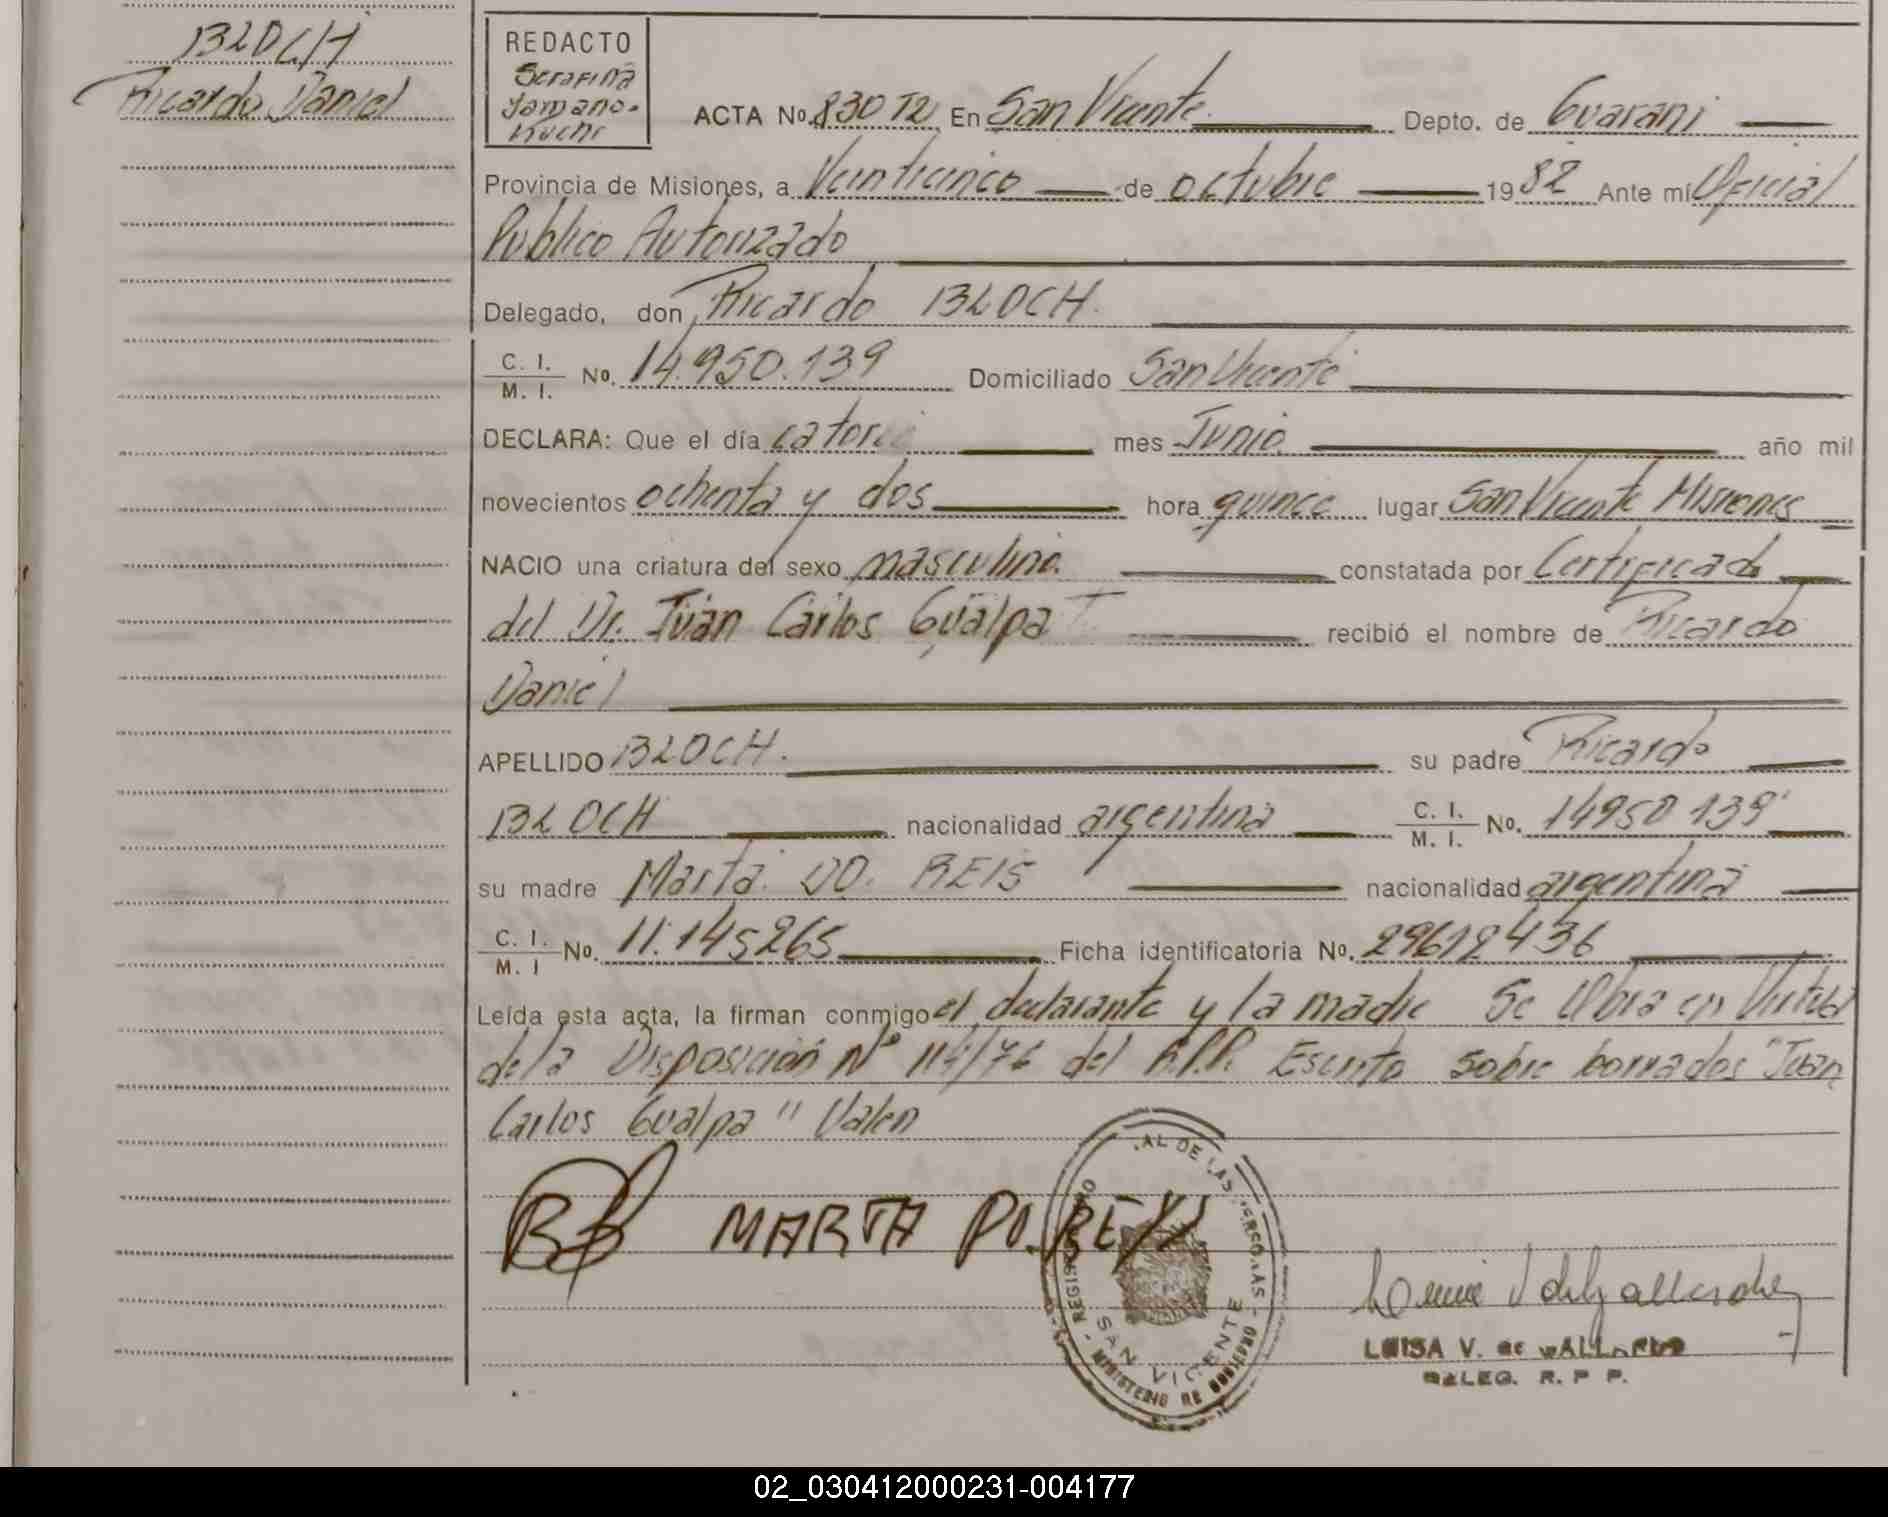 BLOCH
Ricardo Daniel
REDACTO
Serafina
ACTA No. 830 T2 En San Vicente Depto. de Guarani
Provincia de Misiones, a Veinticinco de octubre 1982 Ante mí Oficial
Publico Autorizado
Delegado, don Ricardo BLOCH.
C. I.
M. I. No. 14.950.139 Domiciliado San Vicente
DECLARA: Que el día catorce mes Junio año mil
novecientos ochenta y dos hora quince lugar San Vicente Misiones
NACIO una criatura del sexo masculino. constatada por Certificado
del Dr. Juan Carlos Gualpa recibió el nombre de Ricardo
Daniel
APELLIDO BLOCH. su padre Ricardo
BLOCH nacionalidad argentina C. I.
M. I. No. 14950139
su madre Marta DO. REIS nacionalidad argentina
C. I.
M. I No. 11.145265 Ficha identificatoria No. 29612436
Leída esta acta, la firman conmigo el declarante y la madre Se Obra en Virtud
de la Disposición Nº 114/76 del R.P.P. Escrito sobre borrados "Juan
Carlos Gualpa" Valen
RB MARTA DO. REIS
AL DE LAS PERSONAS
REGISTRO
SAN VICENTE
MINISTERIO DE GOBIERNO
LUISA V. de GALLARDO
DELEG. R. P P.
02_030412000231-004177